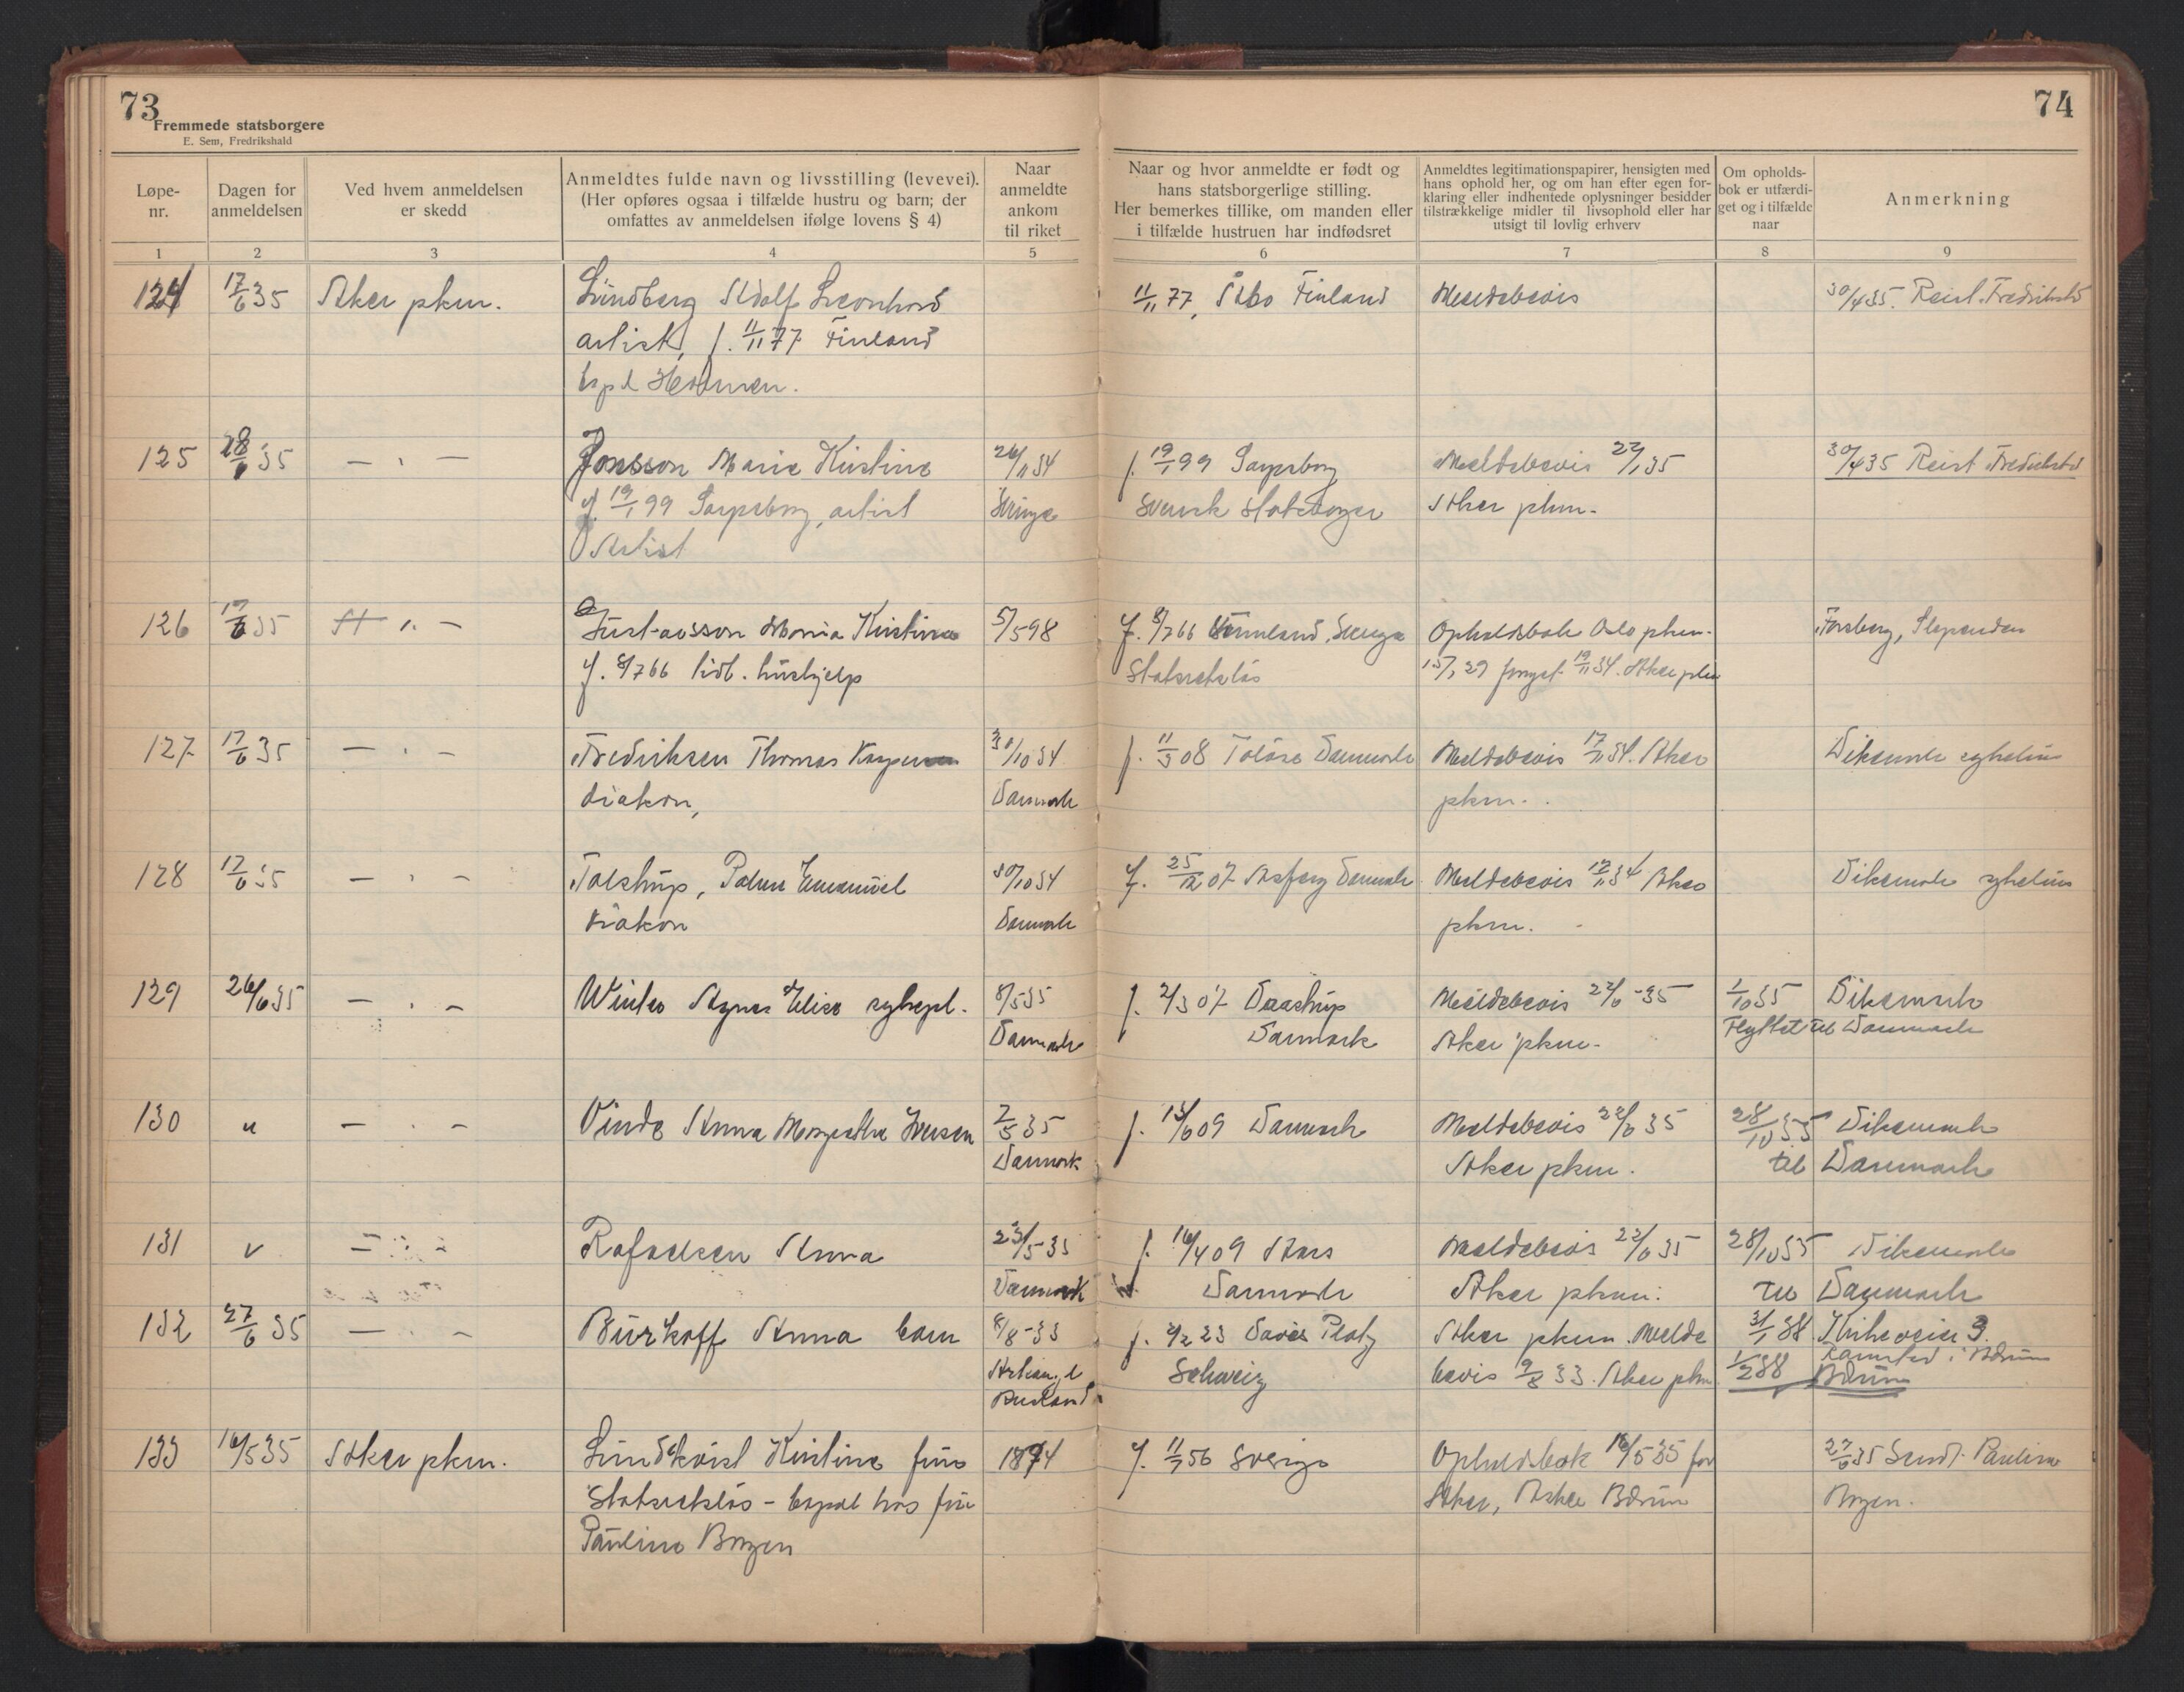 73
Fremmede statsborgere
E. Sem, Fredrikshald
74
Løpe-
nr.
Dagen for
anmeldelsen
Ved hvem anmeldelsen
er skedd
Anmeldtes fulde navn og livsstilling (levevei).
(Her opføres ogsaa i tilfælde hustru og barn; der
omfattes av anmeldelsen ifølge lovens § 4)
Naar
anmeldte
ankom
til riket
Naar og hvor anmeldte er født og
hans statsborgerlige stilling.
Her bemerkes tillike, om manden eller
i tilfælde hustruen har indfødsret
Anmeldtes legitimationspapirer, hensigten med
hans ophold her, og om han efter egen for-
klaring eller indhentede oplysninger besidder
tilstrækkelige midler til livsophold eller har
utsigt til lovlig erhverv
Om opholds-
bok er utfærdi-
get og i tilfælde
naar
Anmerkning
1 2 3 4 5 6 7 8 9
124 17/6 35 Aker pkm. Lundberg Adolf Leonhard 11/11 77, Åbo Finland Meldebevis 30/4 35. Reist Fredrikstad
artist, f. 11/11 77 Finland
125 28/6 35 — " — Jonsson Marie Kristine 26/11 34 f. 19/1 99 Sarpsborg Meldebevis 22/1 35 30/4 35 Reist Fredrikstad
f. 19/1 99 Sarpsborg, artist Sverige Svensk statsborger Aker pkm.
Artist
126 17/6 35 — " — Gustavsson Maria Kristine 5/5 98 f. 8/7 66 Värmland, Sverige Opholdsbok Oslo pkm. Forsberg, Slependen
f. 8/7 66 tidl. hushjelp Statsretsløs 15/7 29 fornyet 19/11 34. Aker pkm
127 17/6 35 — " — Fredriksen Thomas 30/10 34 f. 11/3 08 Tølløse Danmark Meldebevis 17/11 34. Aker Dikemark sykehus
diakon, Danmark pkm.
128 17/6 35 — " — Tolstrup, Emanuel 30/10 34 f. 25/12 07 Danmark Meldebevis 17/11 34 Aker Dikemark sykehus
diakon Danmark pkm.
129 26/6 35 — " — Winter Agnes Elise sykepl. 8/5 35 f. 2/3 07 Daastrup Meldebevis 22/6 -35 1/10 35 Dikemark
Danmark Danmark Aker pkm. Flyttet til Danmark
130 " — " — Vinde Anna Margrethe Iversen 2/5 35 f. 13/6 09 Danmark Meldebevis 22/6 35 28/10 35 Dikemark
Danmark Aker pkm. til Danmark
131 " — " — Rafaelsen Anna 23/5-35 f. 16/4 09 Aars Meldebevis 22/6 35 28/10 35 Dikemark
Danmark Danmark Aker pkm. til Danmark
132 27/6 35 — " — Burkoff Anna barn 8/8-33 f. 2/2 23 Davos Platz Aker pkm. Melde 31/1 38 Kirkeveien 3.
Arkangel Schweiz bevis 9/8 33. Aker pkm 1/2 38 Ramstad i Bærum
Russland Bærum
133 16/5 35 Aker pkm. Lundkvist Kristine frue 1874 f. 11/7 56 Sverige Opholdsbok 16/5 35 for 27/6 35 Sendt Pauline
Statsretsløs - bopæl hos fru Aker, Asker Bærum
Pauline